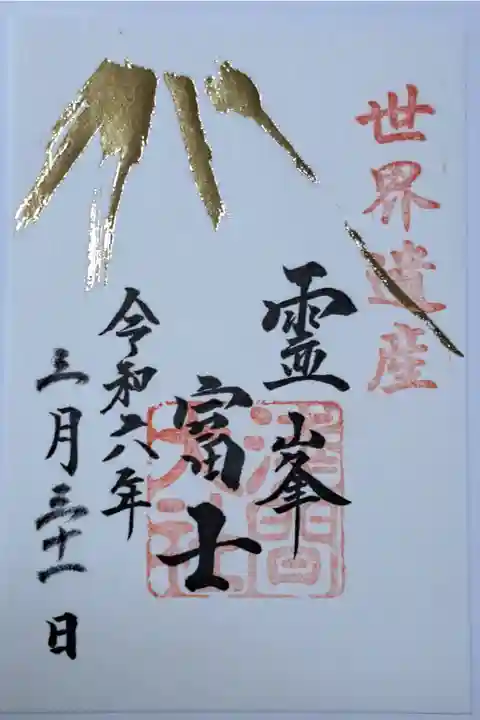 世界遺産
霊峯
富士
淺間
大社
令和六年
三月三十一日